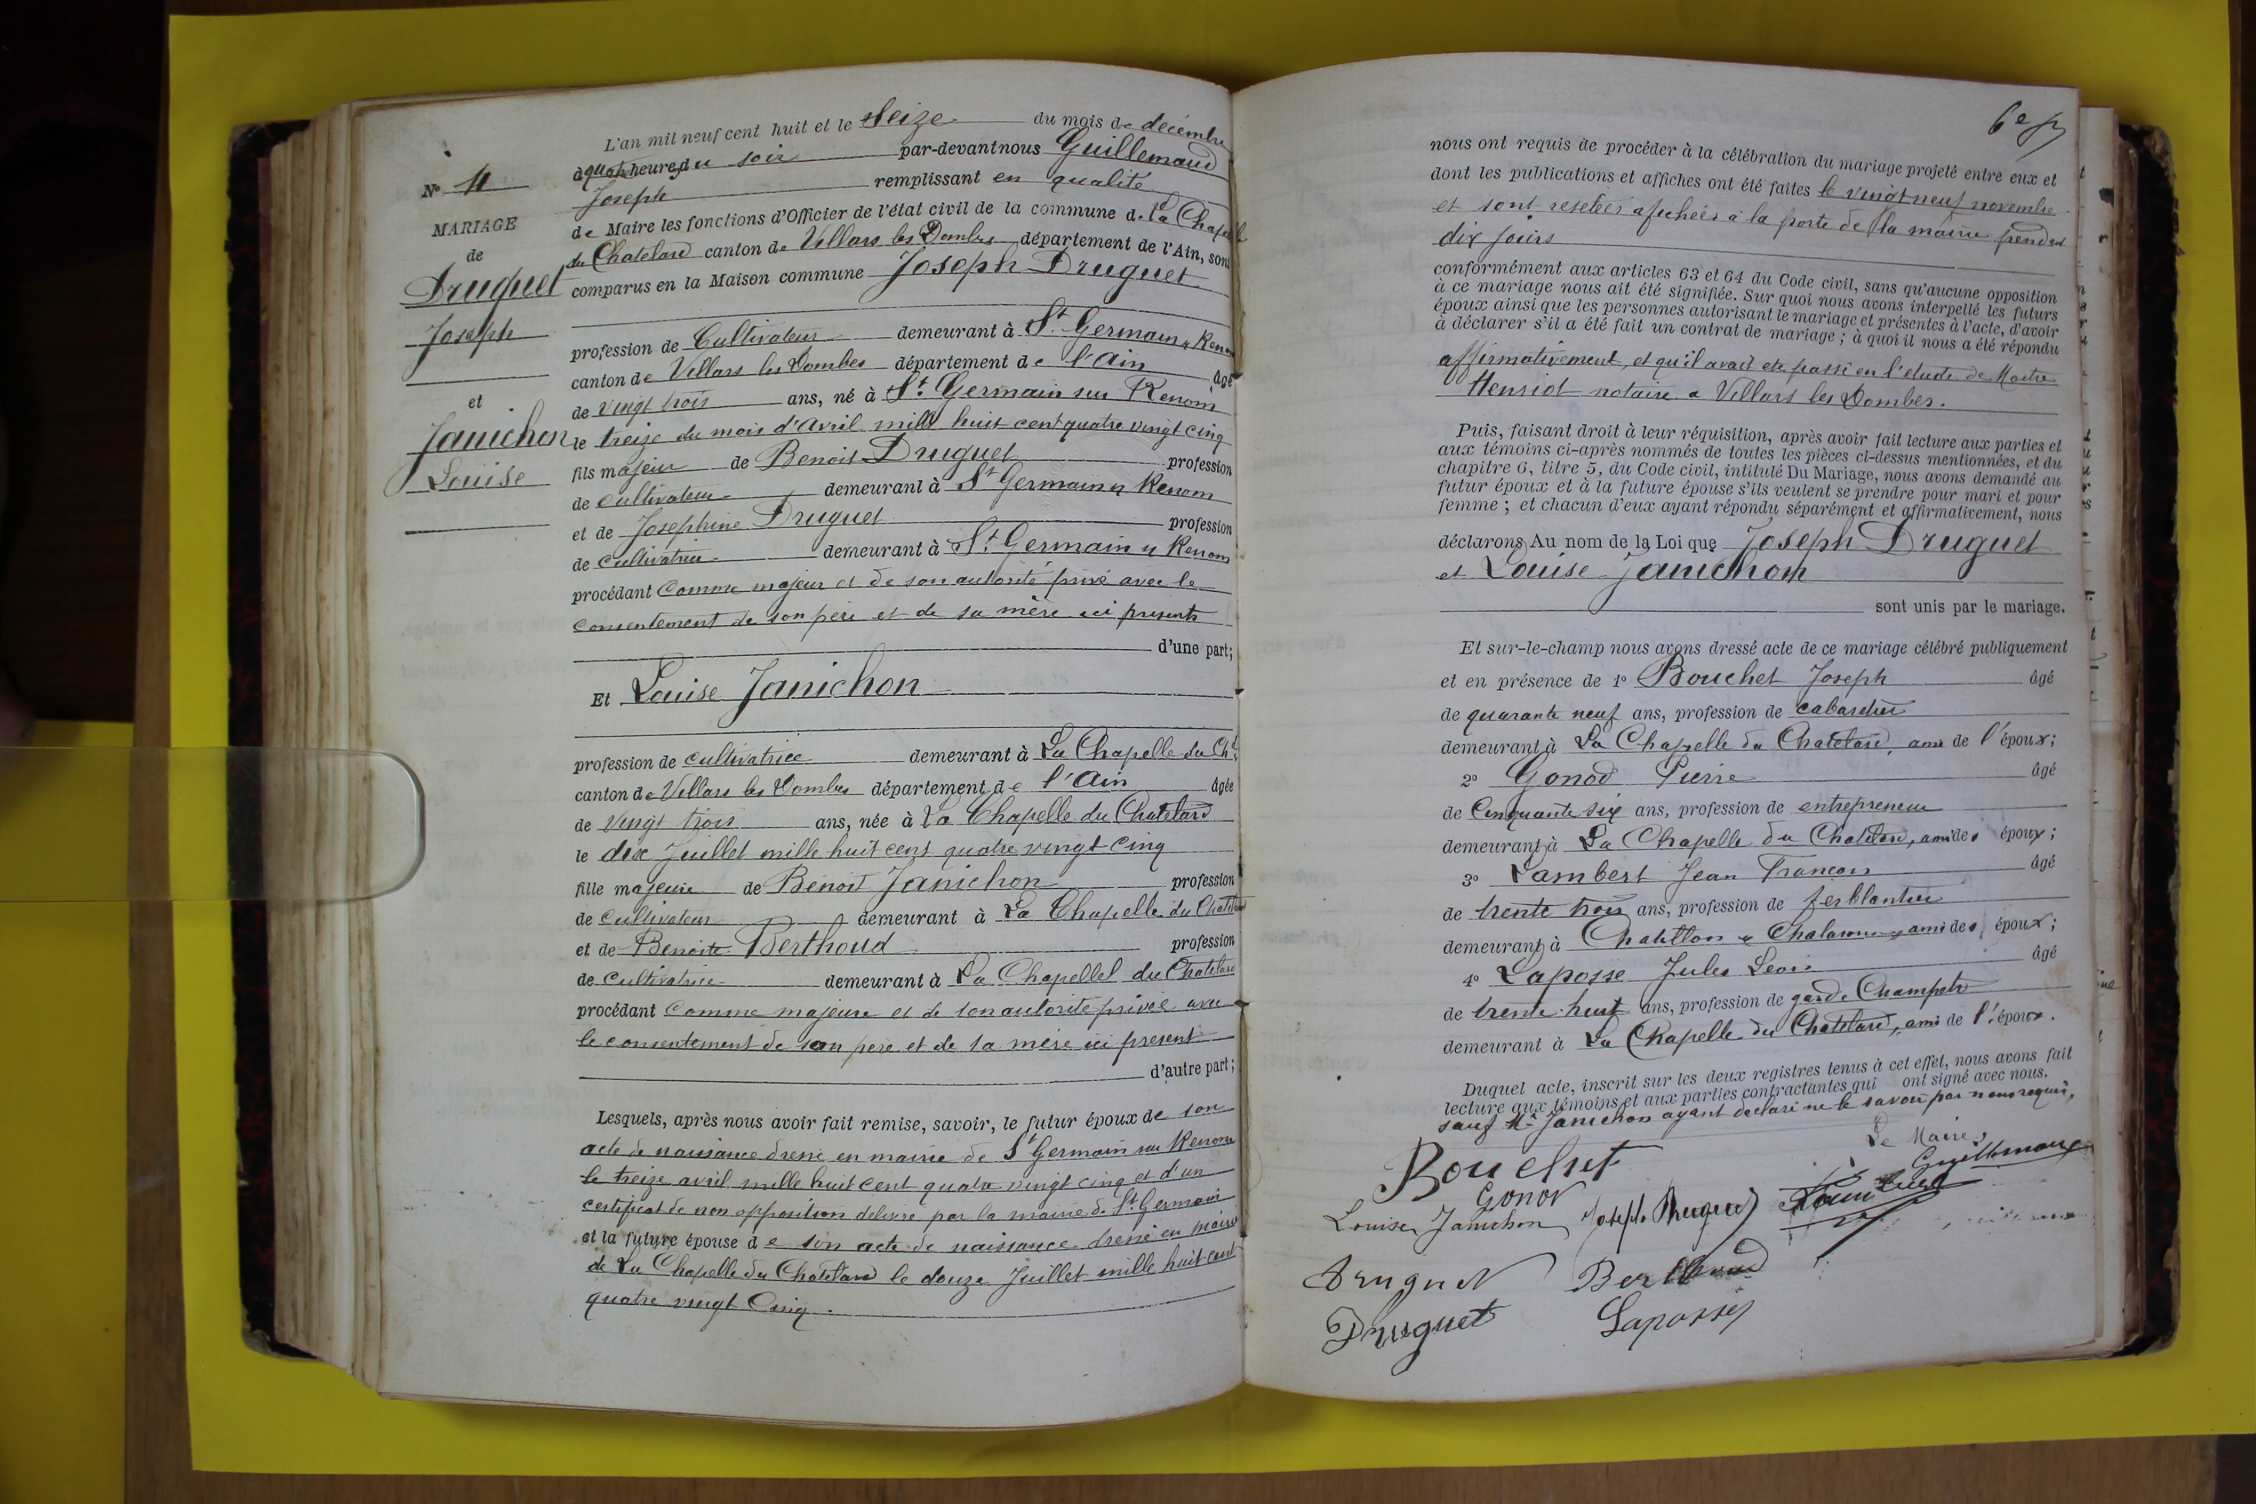 L'an mil neuf cent huit et le seize du mois de décembre
à quatre heures du soir par-devant nous Guillemaud
Joseph remplissant en qualité
de Maire les fonctions d'Officier de l'état civil de la commune de La Chapelle
du Chatelard canton de Villars les Dombes département de l'Ain, sont
comparus en la Maison commune Joseph Druguet
profession de Cultivateur demeurant à St Germain s Renon
canton de Villars les Dombes département de l'Ain âgé
de vingt trois ans, né à St Germain sur Renom
le treize du mois d'Avril mille huit cent quatre vingt cinq
fils majeur de Benoit Druguet profession
de cultivateur demeurant à St Germain s Renom
et de Josephine Druguet profession
de cultivatrice demeurant à St Germain s Renom
procédant comme majeur et de son autorité privé avec le
consentement de son père et de sa mère ici présents
d'une part;
Et Louise Janichon
profession de cultivatrice demeurant à La Chapelle du Cht
canton de Villars les Dombes département de l'Ain âgée
de vingt trois ans, née à La Chapelle du Chatelard
le dix Juillet mille huit cent quatre vingt cinq
fille majeure de Benoit Janichon profession
de cultivateur demeurant à La Chapelle du Chatelard
et de Benoite Berthoud profession
de cultivatrice demeurant à La Chapellel du Chatelard
procédant comme majeure et de son autorité privée avec
le consentement de son père et de sa mère ici présent
d'autre part;
Lesquels, après nous avoir fait remise, savoir, le futur époux de son
acte de naissance dressé en mairie de St Germain sur Renom
le treize avril mille huit cent quatre vingt cinq et d'un
certificat de non opposition delivré par la mairie de St Germain
et la future épouse de son acte de naissance dressé en mairie
de La Chapelle du Chatelard le douze Juillet mille huit cent
quatre vingt Cinq.
No 11
MARIAGE
de
Druguet
Joseph
et
Janichon
Louise
nous ont requis de procéder à la célébration du mariage projeté entre eux et
dont les publications et affiches ont été faites le vingt neuf novembre
et sont restées afichées a la porte de la mairie pendant
dix jours
conformément aux articles 63 et 64 du Code civil, sans qu'aucune opposition
à ce mariage nous ait été signifiée. Sur quoi nous avons interpellé les futurs
époux ainsi que les personnes autorisant le mariage et présentes à l'acte, d'avoir
à déclarer s'il a été fait un contrat de mariage; à quoi il nous a été répondu
affirmativement, et qu'il avait ete passé en l'etude de Maitre
Henriot notaire a Villars les Dombes.
Puis, faisant droit à leur réquisition, après avoir fait lecture aux parties et
aux témoins ci-après nommés de toutes les pièces ci-dessus mentionnées, et du
chapitre 6, titre 5, du Code civil, intitulé Du Mariage, nous avons demandé au
futur époux et à la future épouse s'ils veulent se prendre pour mari et pour
femme; et chacun d'eux ayant répondu séparément et affirmativement, nous
déclarons Au nom de la Loi que Joseph Druguet
et Louise Janichon
sont unis par le mariage.
Et sur-le-champ nous avons dressé acte de ce mariage célébré publiquement
et en présence de 1o Bouchet Joseph âgé
de quarante neuf ans, profession de cabaretier
demeurant à La Chapelle du Chatelard, ami de l'époux;
2o Gonod Pierre âgé
de Cinquante six ans, profession de entrepreneur
demeurant à La Chapelle du Chatelard, ami des époux;
3o Lambert Jean François âgé
de trente trois ans, profession de ferblantier
demeurant à Chatillon s Chalaronne, ami des époux;
4o Laposse Jules Leon âgé
de trente huit ans, profession de garde Champetre
demeurant à La Chapelle du Chatelard, ami de l'époux.
Duquel acte, inscrit sur les deux registres tenus à cet effet, nous avons fait
lecture aux témoins et aux parties contractantes qui ont signé avec nous.
sauf Mr Janichon ayant declaré ne le savoir par nous requis,
Le Maire,
Guillemaud
Bouchet
Gonod
Louise Janichon Joseph Druguet
Druguet Berthoud
Druguet Laposse